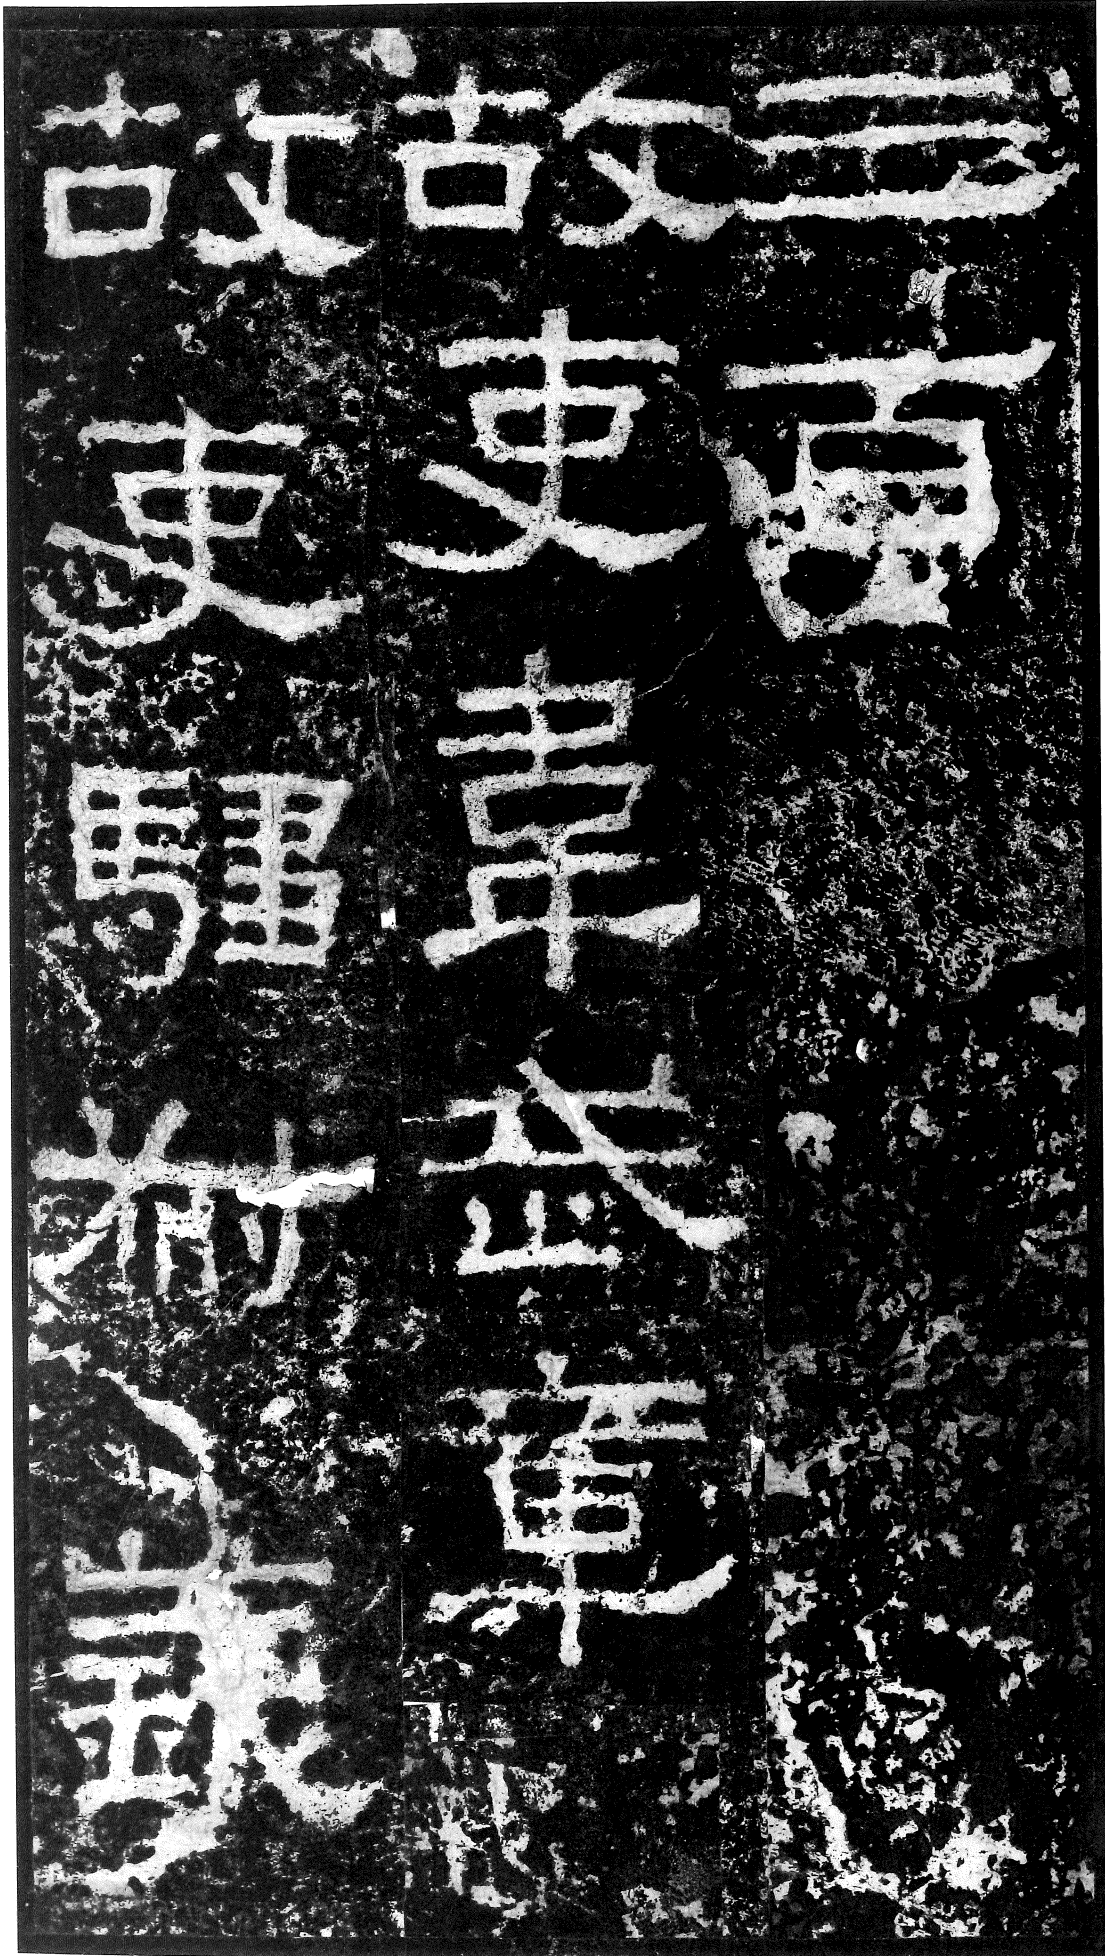 三百
故吏韋武章
故吏騶叔義